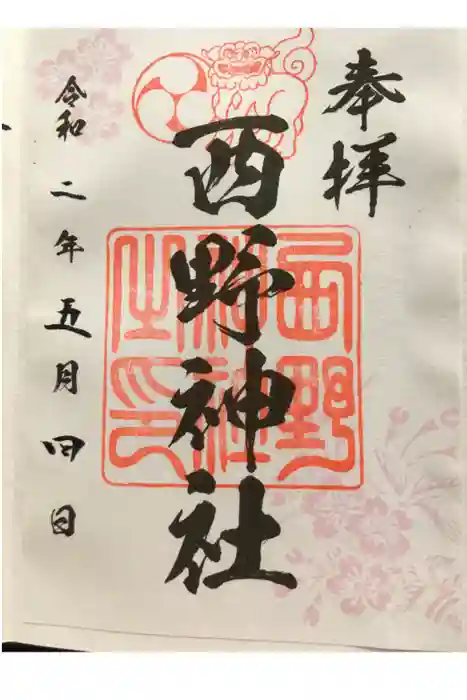 奉拝
西野神社
西野
神社
之印
令和二年五月四日